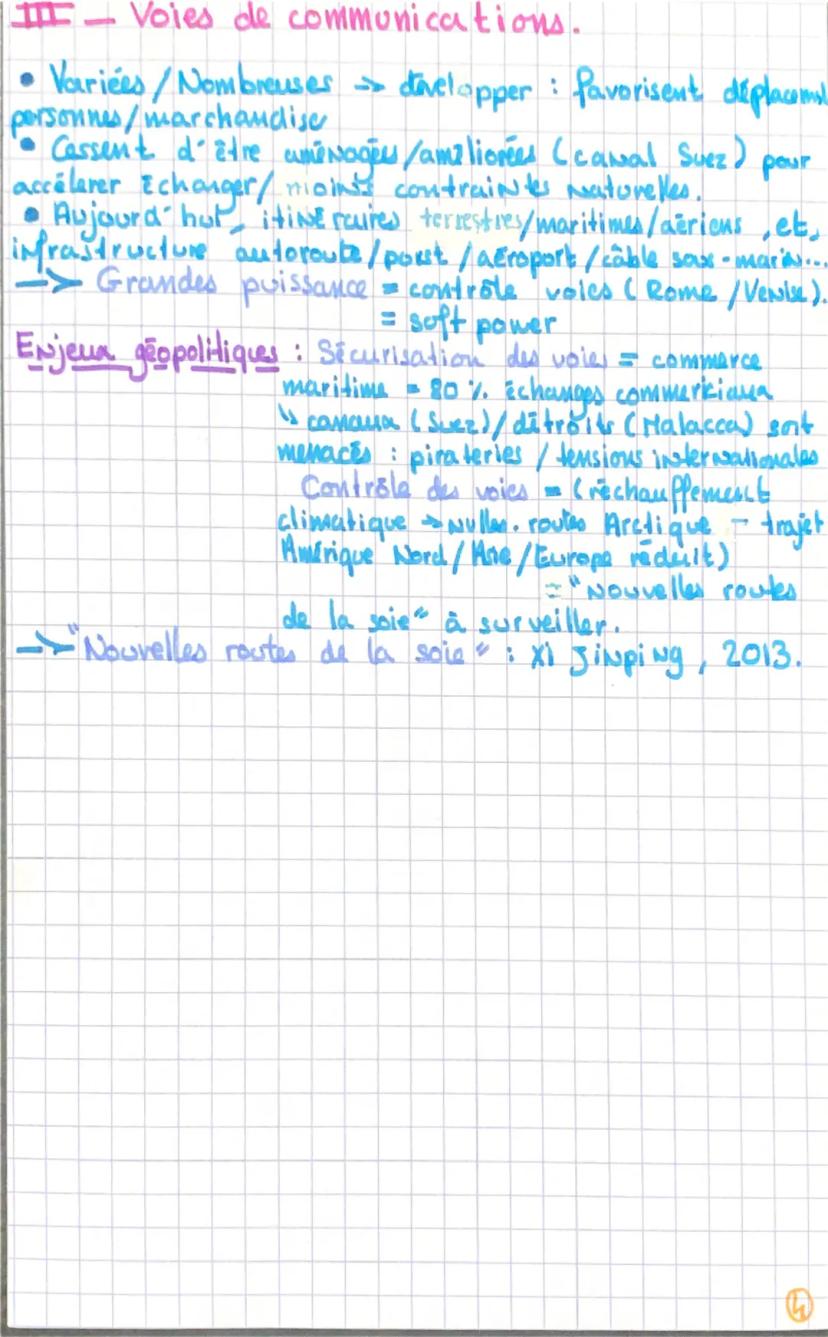 III – Voies de communications.
• Variées/Nombreuses -> développer : favorisent déplacemt
personnes/marchandise
• Cessent d'être aménagées/améliorées (canal Suez) pour
accélerer échanger/ moins contraintes naturelles.
• Aujourd'hui, itinéraires terrestres/maritimes/aériens, et,
infrastructure autoroute/port/aéroport/câble sous-marin...
—> Grandes puissance = contrôle voies (Rome/Venise).
= soft power
Enjeux géopolitiques : Sécurisation des voies = commerce
maritime = 80 % échanges commerciaux
↳ canaux (Suez)/détroits (Malacca) sont
menacés : pirateries / tensions internationales
Contrôle des voies = (réchauffement
climatique -> nvlles. routes Arctique – trajet
Amérique Nord/Asie/Europe réduit)
= "Nouvelles routes
de la soie" à surveiller.
—> "Nouvelles routes de la soie" : Xi Jinping, 2013.
4